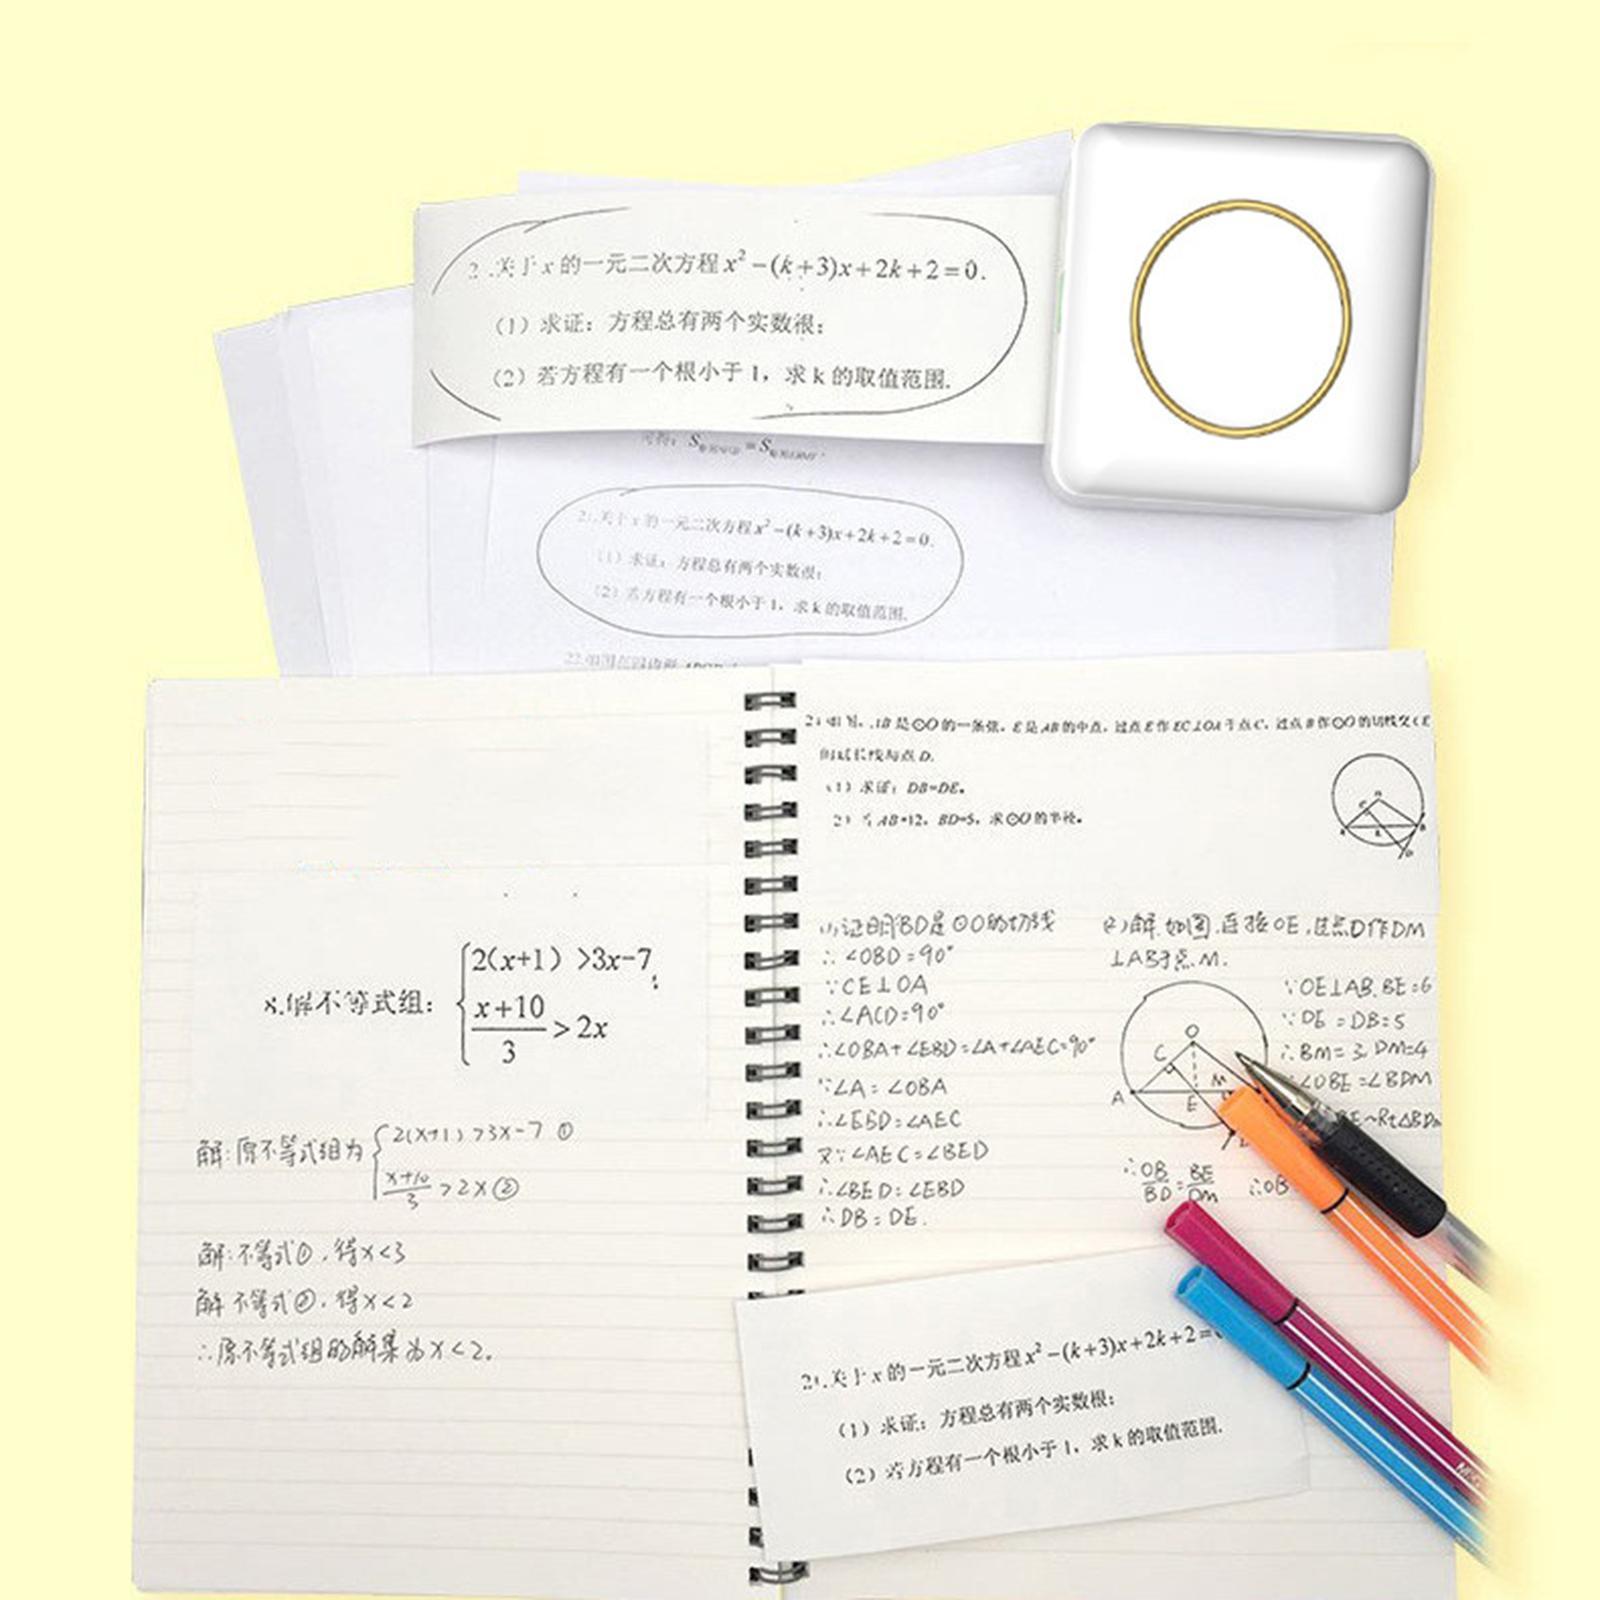 2 .关于x的一元二次方程x²-(k+3)x+2k+2=0.
（1）求证：方程总有两个实数根；
（2）若方程有一个根小于1，求k的取值范围.
21.关于x的一元二次方程x²-(k+3)x+2k+2=0.
（1）求证：方程总有两个实数根；
（2）若方程有一个根小于1，求k的取值范围.
AB是⊙O的一条弦，E是AB的中点，过点E作EC⊥OA于点C，过点B作⊙O的切线交CE
的延长线与点D.
（1）求证：DB=DE。
2）若AB=12，BD=5，求⊙O的半径。
8.解不等式组：{2(x+1) >3x-7;
x+10/3 > 2x
解:原不等式组为{2(x+1)>3x-7 ①
x+10/3 >2x ②
解:不等式①,得x<3
解 不等式②,得x<2
∴原不等式组的解集为x<2.
(1)证明:BD是⊙O的切线
∴∠OBD=90°
∵CE⊥OA
∴∠ACD=90°
∴∠OBA+∠EBD=∠A+∠AEC=90°
∵∠A=∠OBA
∴∠EBD=∠AEC
又∵∠AEC=∠BED
∴∠BED=∠EBD
∴DB=DE.
(2)解.如图.连接OE,过点D作DM
⊥AB于点M.
∵OE⊥AB.BE=6
∵DE=DB=5
∴BM=3.DM=4
∠OBE=∠BDM
BE~Rt△BDM
∴OB/BD=BE/DM ∴OB
O
C
M
A
E
21.关于x的一元二次方程x²-(k+3)x+2k+2=
（1）求证：方程总有两个实数根；
（2）若方程有一个根小于1，求k的取值范围.